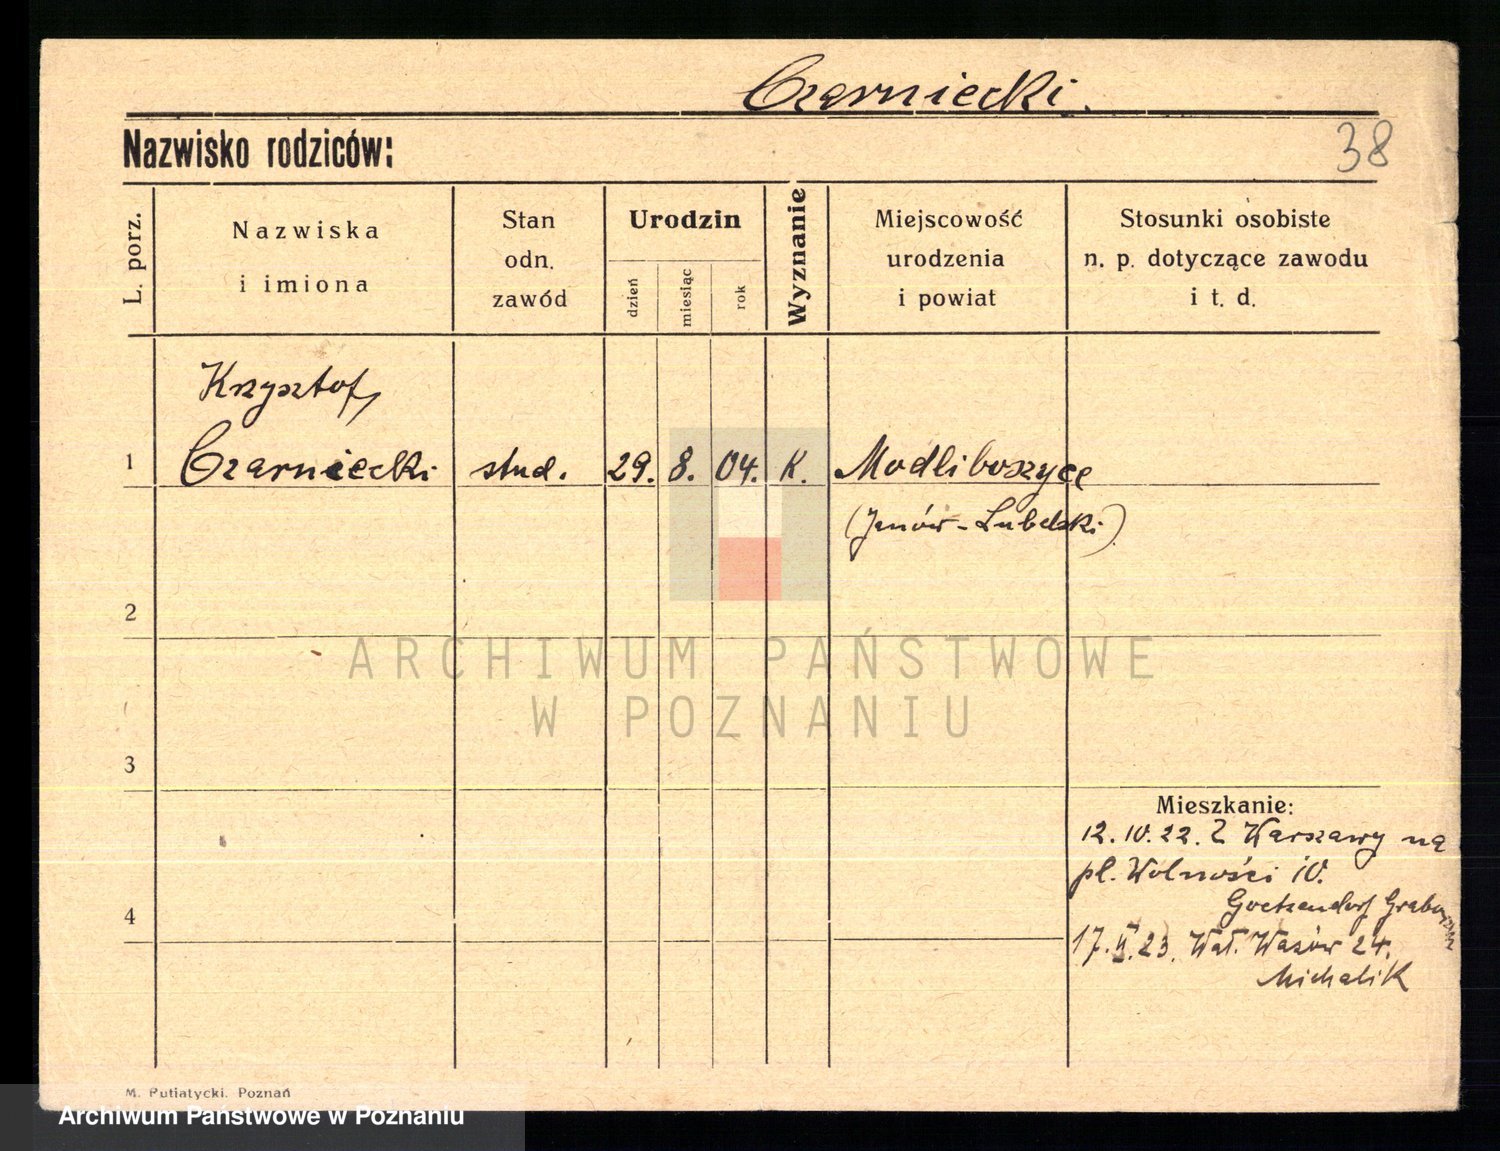 Czarniecki.
Nazwisko rodziców:
38
L. porz.
Nazwiska
i imiona
Stan
odn.
zawód
Urodzin
dzień
miesiąc
rok
Wyznanie
Miejscowość
urodzenia
i powiat
Stosunki osobiste
n. p. dotyczące zawodu
i t. d.
Krzysztof
1 Czarniecki stud. 29. 8. 04. K. Modliboszyce
(Janów-Lubelski)
2
ARCHIWUM PAŃSTWOWE
W POZNANIU
3
Mieszkanie:
12.10.22. Z Warszawy na
pl. Wolności 10.
Goetzendorf
4
17.II.23. Wał. Wazów 24.
Michalik
M. Putiatycki. Poznań
Archiwum Państwowe w Poznaniu